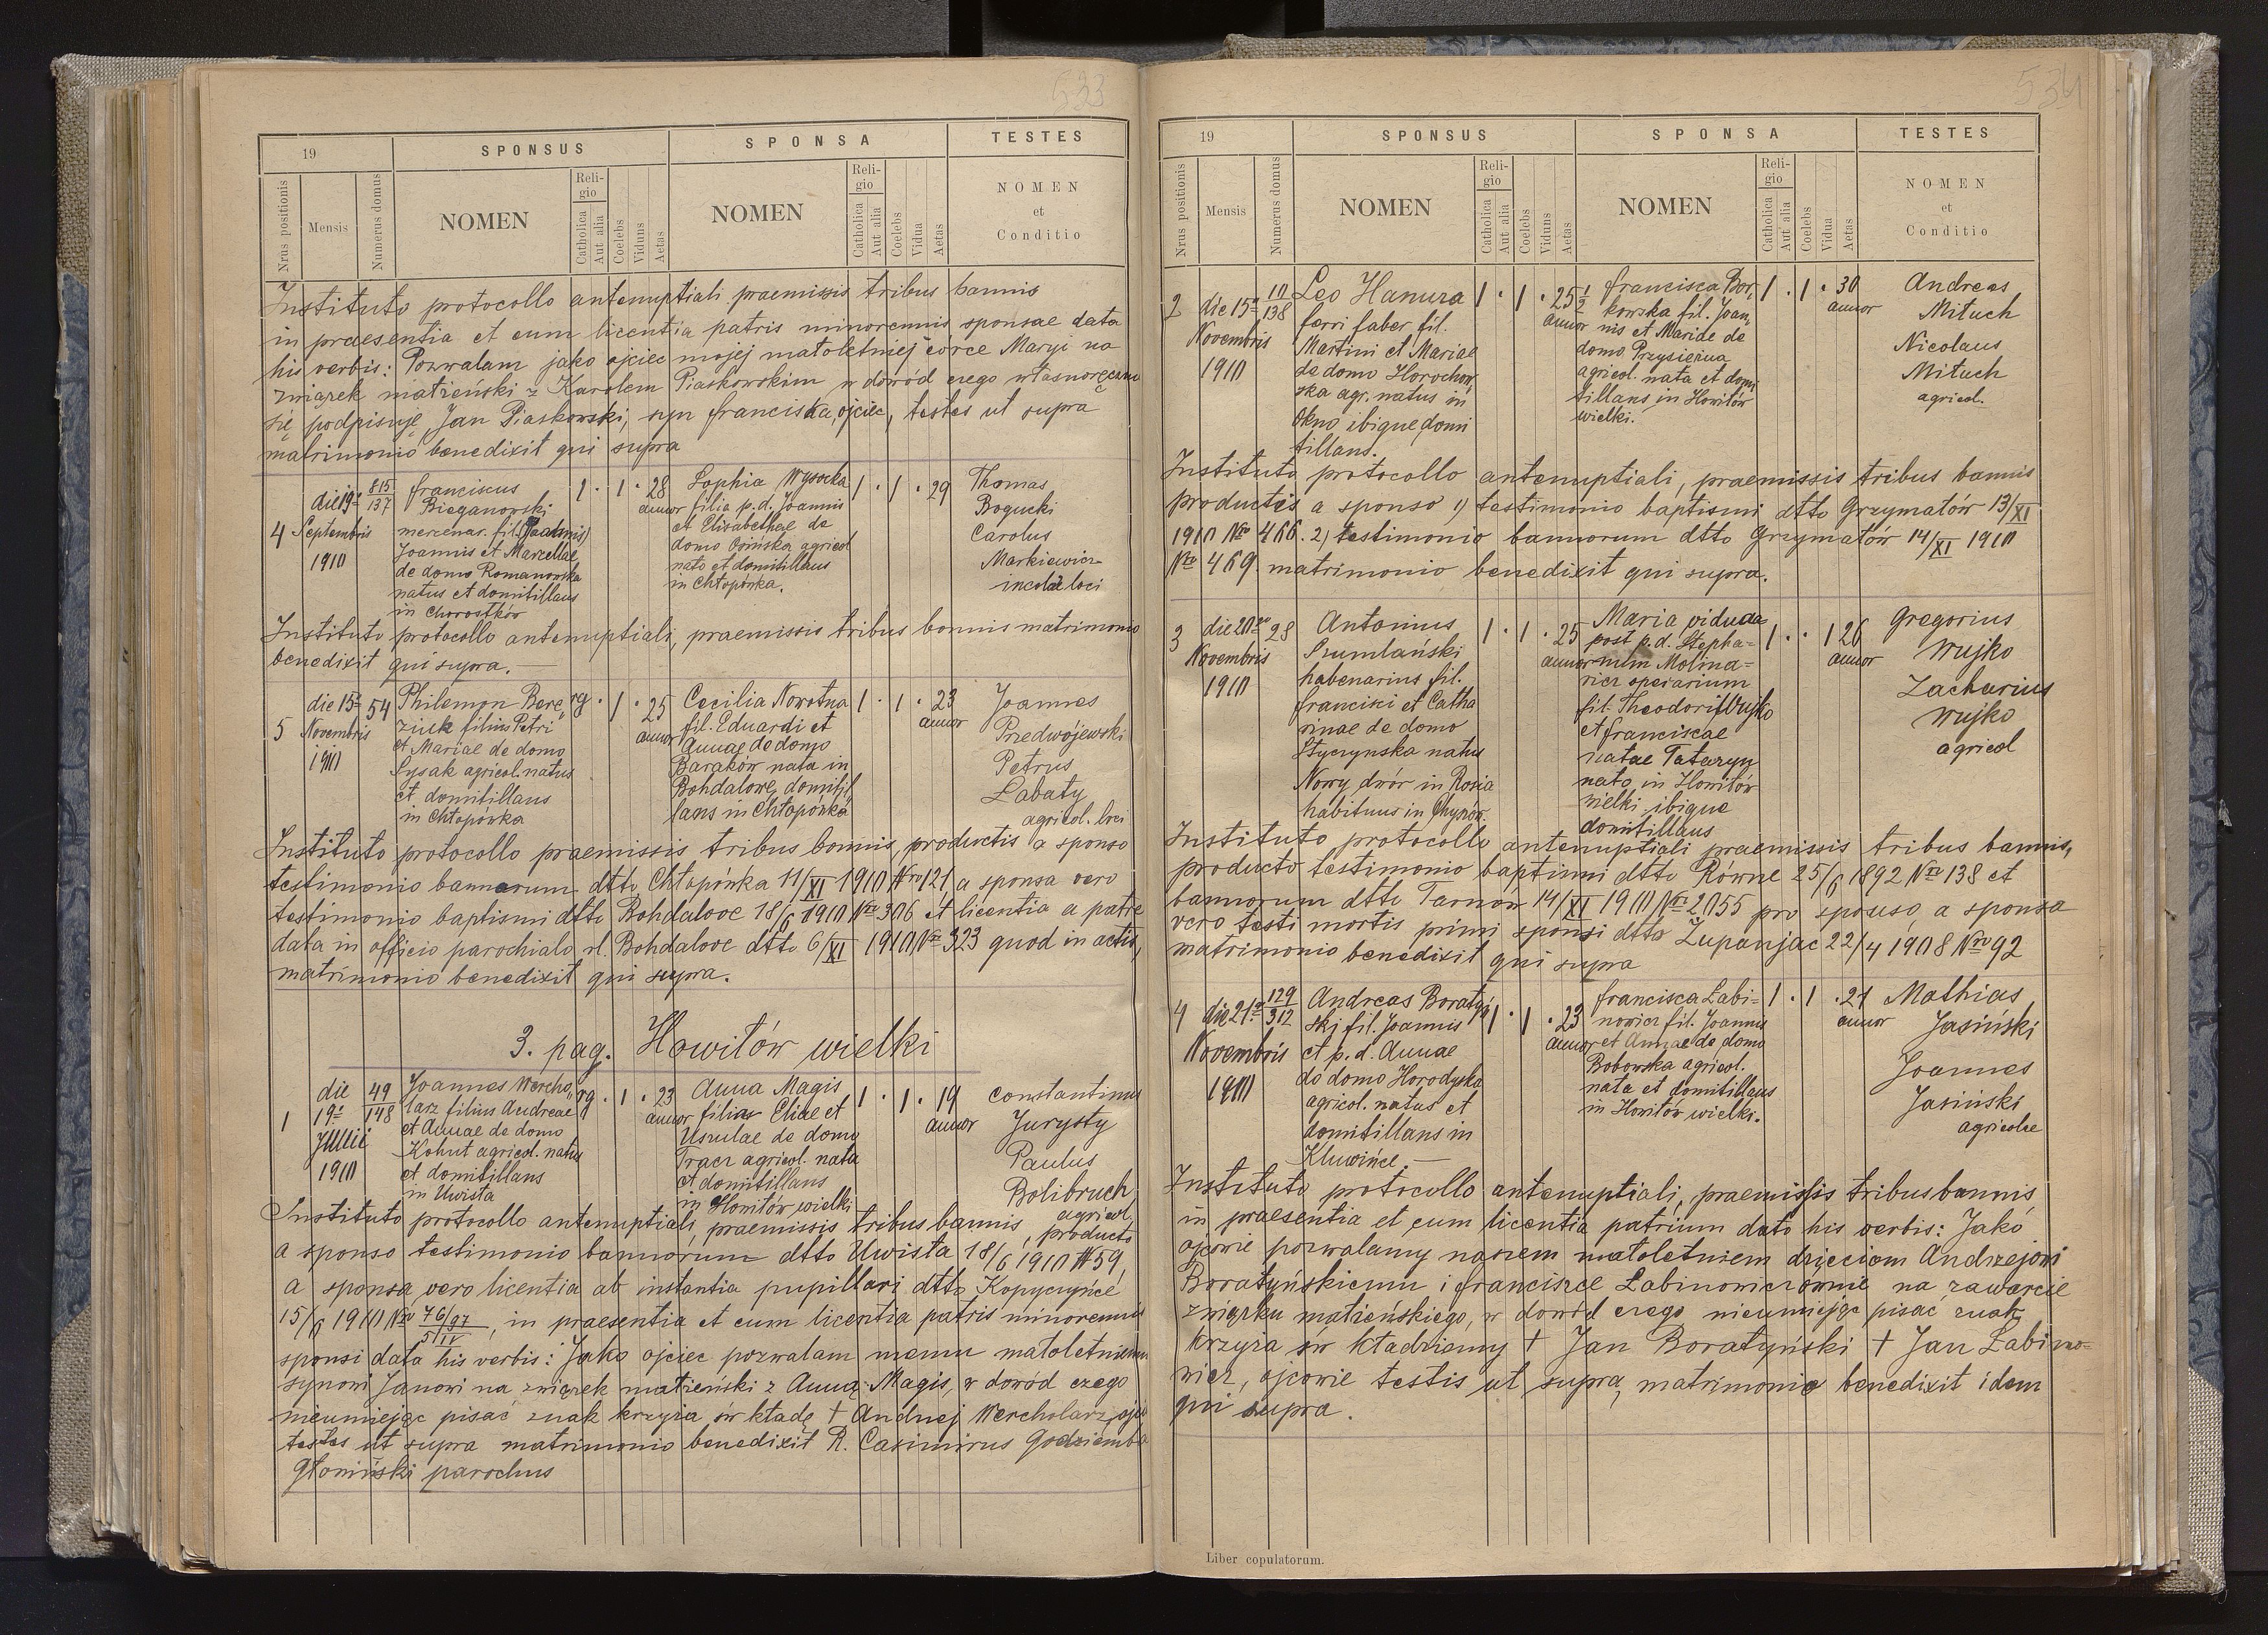 533
19
SPONSUS
SPONSA
TESTES
Nrus positionis
Mensis
Numerus domus
NOMEN
Religio
Catholica
Aut alia
Coelebs
Viduus
Aetas
NOMEN
Religio
Catholica
Aut alia
Coelebs
Vidua
Aetas
NOMEN
et
Conditio
Instituto protocollo antenuptiali praemissis tribus bannis
in praesentia et cum licentia patris minorennis sponsae data
his verbis: Pozwalam jako ojciec mojej małoletniej córce Maryi na
związek małżeński z Karolem Piaskowskim w dowód czego własnoręcznie
się podpisuję, Jan Piaskowski, syn franciszka, ojciec, testes ut supra
matrimonio benedixit qui supra
4
die 19ª
Septembris
1910
815
137
franciscus
Bieganowski
mercenar. fil.
Joannis et Marcellae
de domo Romanowska
natus et domitillans
in Chorostków
1 . 1 . 28
annor
Sophia Wysocka
filia p.d. Joannis
et Elisabethae de
domo Osińska agricol
nata et domitillans
in Chłopówka.
1 . 1 . 29
Thomas
Bogucki
Carolus
Markiewicz
incolae loci
Instituto protocollo antenuptiali, praemissis tribus bannis matrimonio
benedixit qui supra.
5
die 15ª
Novembris
1910
54
Philemon Bere,
ziuk filius Petri
et Mariae de domo
Sysak agricol. natus
et domitillans
in Chłopówka
rg . 1 . 25
annor
Cecilia Nowotna
fil. Eduardi et
Annae de domo
Baraków nata in
Bohdalowe, domitil
lans in Chłopówka
1 . 1 . 23
annor
Joannes
Przedwojewski
Petrus
Łabaty
agricol. loci
Instituto protocollo praemissis tribus bannis, productis a sponso
testimonio bannorum dtto Chłopówka 11/XI 1910 Nro 121, a sponsa vero
testimonio baptismi dtto Bohdalove 18/6 1910 Nro 306 et licentia a patre
data in officio parochiale rl. Bohdalove dtto 6/XI 1910 Nro 323 quod in actis,
matrimonio benedixit qui supra.
3. pag. Howiłów wielki
1
die
19ª
Julii
1910
49
148
Joannes Wercho,
larz filius Andreae
et Annae de domo
Kohut agricol. natus
et domitillans
in Uwisła
rg . 1 . 23
annor
Anna Magis
filia Eliae et
Usrulae de domo
Tracz agricol. nata
et domitillans
in Howiłów wielki
1 . 1 . 19
annor
Constantinus
Jurysty
Paulus
Bolibruch
agricol.
Instituto protocollo antenuptiali, praemissis tribus bannis, producto
a sponso testimonio bannorum dtto Uwisła 18/6 1910 N 59,
a sponsa vero licentia ab instantia pupillari dtto Kopyczyńce
15/6 1910 Nro 76/97 5/IV, in praesentia et cum licentia patris minorennis
sponsi data his verbis: Jako ojciec pozwalam memu małoletniemu
synowi Janowi na związek małżeński z Anną Magis, w dowód czego
nieumiejąc pisać znak krzyża św kładę + Andrzej Wercholarz, ojc
testes ut supra matrimonio benedixit R. Casimirus Godziemba
Głoniński parochus
534
19
SPONSUS
SPONSA
TESTES
Nrus positionis
Mensis
Numerus domus
NOMEN
Religio
Catholica
Aut alia
Coelebs
Viduus
Aetas
NOMEN
Religio
Catholica
Aut alia
Coelebs
Vidua
Aetas
NOMEN
et
Conditio
2
die 15ª
Novembris
1910
10
138
Leo Hanura
ferri faber fil.
Martini et Mariae
de domo Horochow,
ska agr. natus in
Okno ibique domi
tillans.
1 . 1 . 25 1/2
annor
francisca Bor,
kowska fil. Joan,
nis et Mariae de
domo Przysiężna
agricol. nata et domi
tillans in Howiłów
wielki.
1 . 1 . 30
annor
Andreas
Mituch
Nicolaus
Mituch
agricol.
Instituto protocollo antenuptiali, praemissis tribus bannis
productis a sponso 1) testimonio baptismi dtto Grzymałów 13/XI
1910 Nro 466. 2) testimonio bannorum dtto Grzymałów 14/XI 1910
Nro 469. matrimonio benedixit qui supra.
3
die 20ª
Novembris
1910
28
Antonius
Szumlański
habenarius fil.
francisci et Catha
rinae de domo
Styczynska natus
Nowy dwór in Rosia
habituus in Chyrów.
1 . 1 . 25
annor
Maria vidua
post p.d. Stepha=
num Molina=
ricz operarium
fil. Theodori Wujko
et franciscae
natae Tataryn
nata in Howiłów
wielki ibique
domitillans
1 . . 1 26
annor
Gregorius
Wujko
Zacharius
Wujko
agricol
Instituto protocollo antenuptiali praemissis tribus bannis,
producto testimonio baptismi dtto Równe 25/6 1892 Nro 138 et
bannorum dtto Tarnow 14/XI 1910 Nro 2055 pro sponso, a sponsa
vero testi mortis primi sponsi dtto Zupanjac 22/4 1908 Nro 92
matrimonio benedixit qui supra
4
die 21ª
Novembris
1910
129
312
Andreas Boratyń
ski fil. Joannis
et p.d. Annae
de domo Horodyska
agricol. natus et
domitillans in
Kluwińce.
1 . 1 . 23
annor
francisca Łabi=
nowicz fil. Joannis
et Annae de domo
Bobowska agricol.
nata et domitillans
in Howiłów wielki.
1 . 1 . 21
annor
Mathias
Jasiński
Joannes
Jasiński
agricolae
Instituto protocollo antenuptiali, praemissis tribus bannis
in praesentia et cum licentia patrium data his verbis: Jako
ojcowie pozwalamy naszem małoletniem dzieciom Andrzejowi
Boratyńskiemu i franciszce Łabinowiczównie na zawarcie
związku małżeńskiego, w dowód czego nieumiejąc pisać znak
krzyża św kładziemy + Jan Boratyński + Jan Łabino=
wicz, ojcowie testis ut supra, matrimonio benedixit idem
qui supra.
Liber copulatorum.